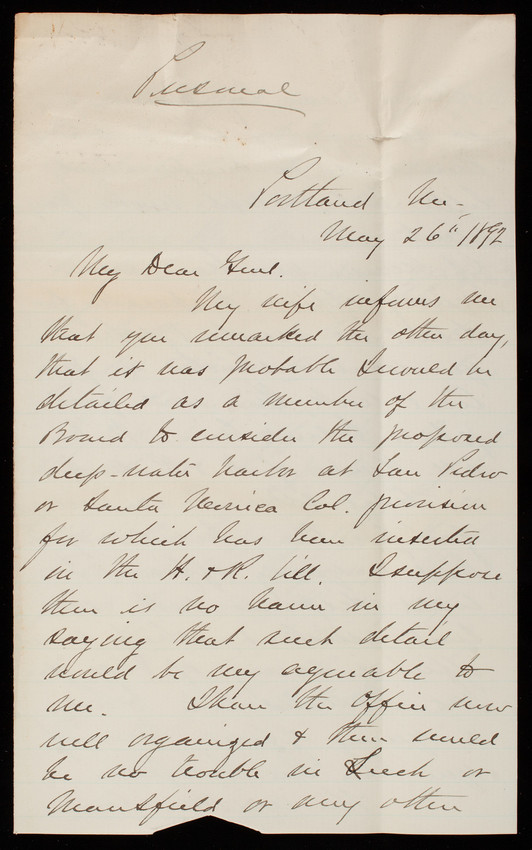 Personal
Portland Me-
May 26" 1892
My Dear Genl.
My wife informs me
that you remarked the other day,
that it was probable I would be
detailed as a member of the
Board to consider the proposed
deep-water harbor at San Pedro
or Santa Monica Cal. provision
for which has been inserted
in the H. & R. bill. I suppose
there is no harm in my
saying that such detail
would be very agreeable to
me. I have the Office now
well organized & there would
be no trouble in Leach or
Mansfield or any other